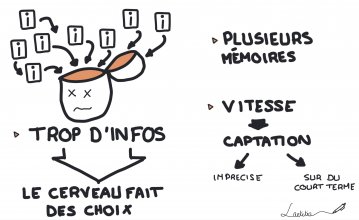 i
i
i
i
i
i
i
▸ TROP D'INFOS
LE CERVEAU FAIT
DES CHOIX
▸ PLUSIEURS
MÉMOIRES
▸ VITESSE
CAPTATION
IMPRECISE
SUR DU
COURT TERME